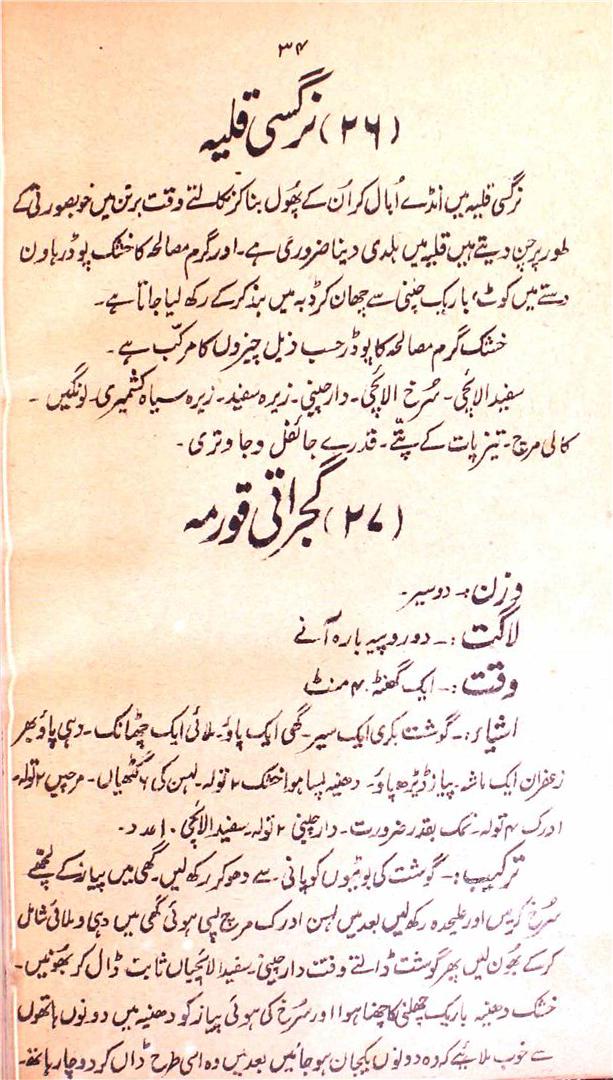 ۳۴
(۲۶) نرگسی قلیہ
نرگسی قلیہ میں انڈے اُبال کر اُن کے پھُول بنا کر نکالتے وقت برتن میں خوبصورتی کے
طور پر چن دیتے ہیں قلیہ میں ہلدی دینا ضروری ہے۔ اور گرم مصالحہ کا خشک پوڈر ہاون
دستے میں کوٹ، باریک چھنی سے چھان کر ڈبہ میں بند کر کے رکھ لیا جاتا ہے۔
خشک گرم مصالحہ کا پوڈر حسب ذیل چیزوں کا مرکّب ہے۔
سفید الائچی۔ سُرخ الائچی۔ دارچینی۔ زیرہ سفید۔ زیرہ سیاہ کشمیری۔ لونگیں۔
کالی مرچ۔ تیز پات کے پتّے۔ قدرے جائفل و جاوتری۔
(۲۷) گجراتی قورمہ
وزن:۔ دوسیر۔
لاگت:۔ دو روپیہ بارہ آنے
وقت:۔ ایک گھنٹہ ۴۰ منٹ
اشیاء:۔ گوشت بکری ایک سیر۔ گھی ایک پاؤ۔ ملائی ایک چھٹانک۔ دہی پاؤ بھر
زعفران ایک ماشہ۔ پیاز ڈیڑھ پاؤ۔ دھنیہ پسا ہوا خشک ۲ تولہ۔ لہسن کی ۶ گنٹھیاں۔ مرچیں ۲ تولہ۔
ادرک ۴ تولہ۔ نمک بقدر ضرورت۔ دارچینی ۲ تولہ۔ سفید الائچی ۱۰ عدد۔
ترکیب:۔ گوشت کی بوٹیوں کو پانی سے دھو کر رکھ لیں۔ گھی میں پیاز کے لچھّے
سُرخ کریں اور علیحدہ رکھ لیں بعد میں لہسن ادرک مرچ پسی ہوئی گھی میں دہی و ملائی شامل
کر کے بھُون لیں پھر گوشت ڈالتے وقت دارچینی۔ سفید الائچیاں ثابت ڈال کر بھُونیں۔
خشک دھنیہ باریک چھلنی کا چھنا ہوا اور سُرخ کی ہوئی پیاز کو دھنیہ میں دونوں ہاتھوں
سے خوب ملائیے کہ وہ دونوں یکجان ہو جائیں بعد میں وہ اسی طرح ڈال کر دو چار ہاتھ۔